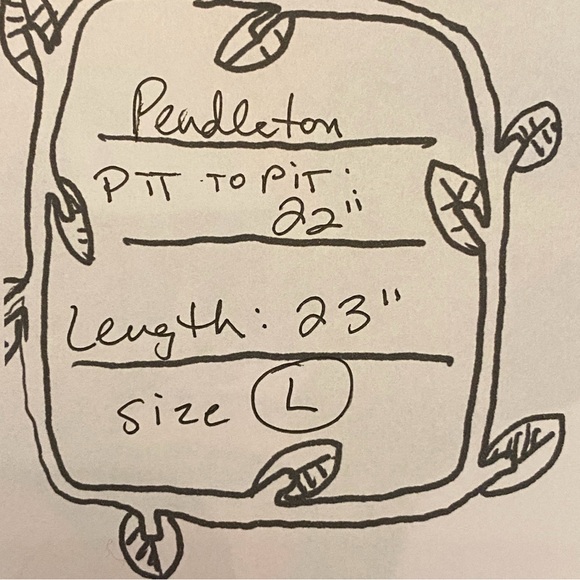 Pendleton
PIT TO PIT:
22"
Length: 23"
size L